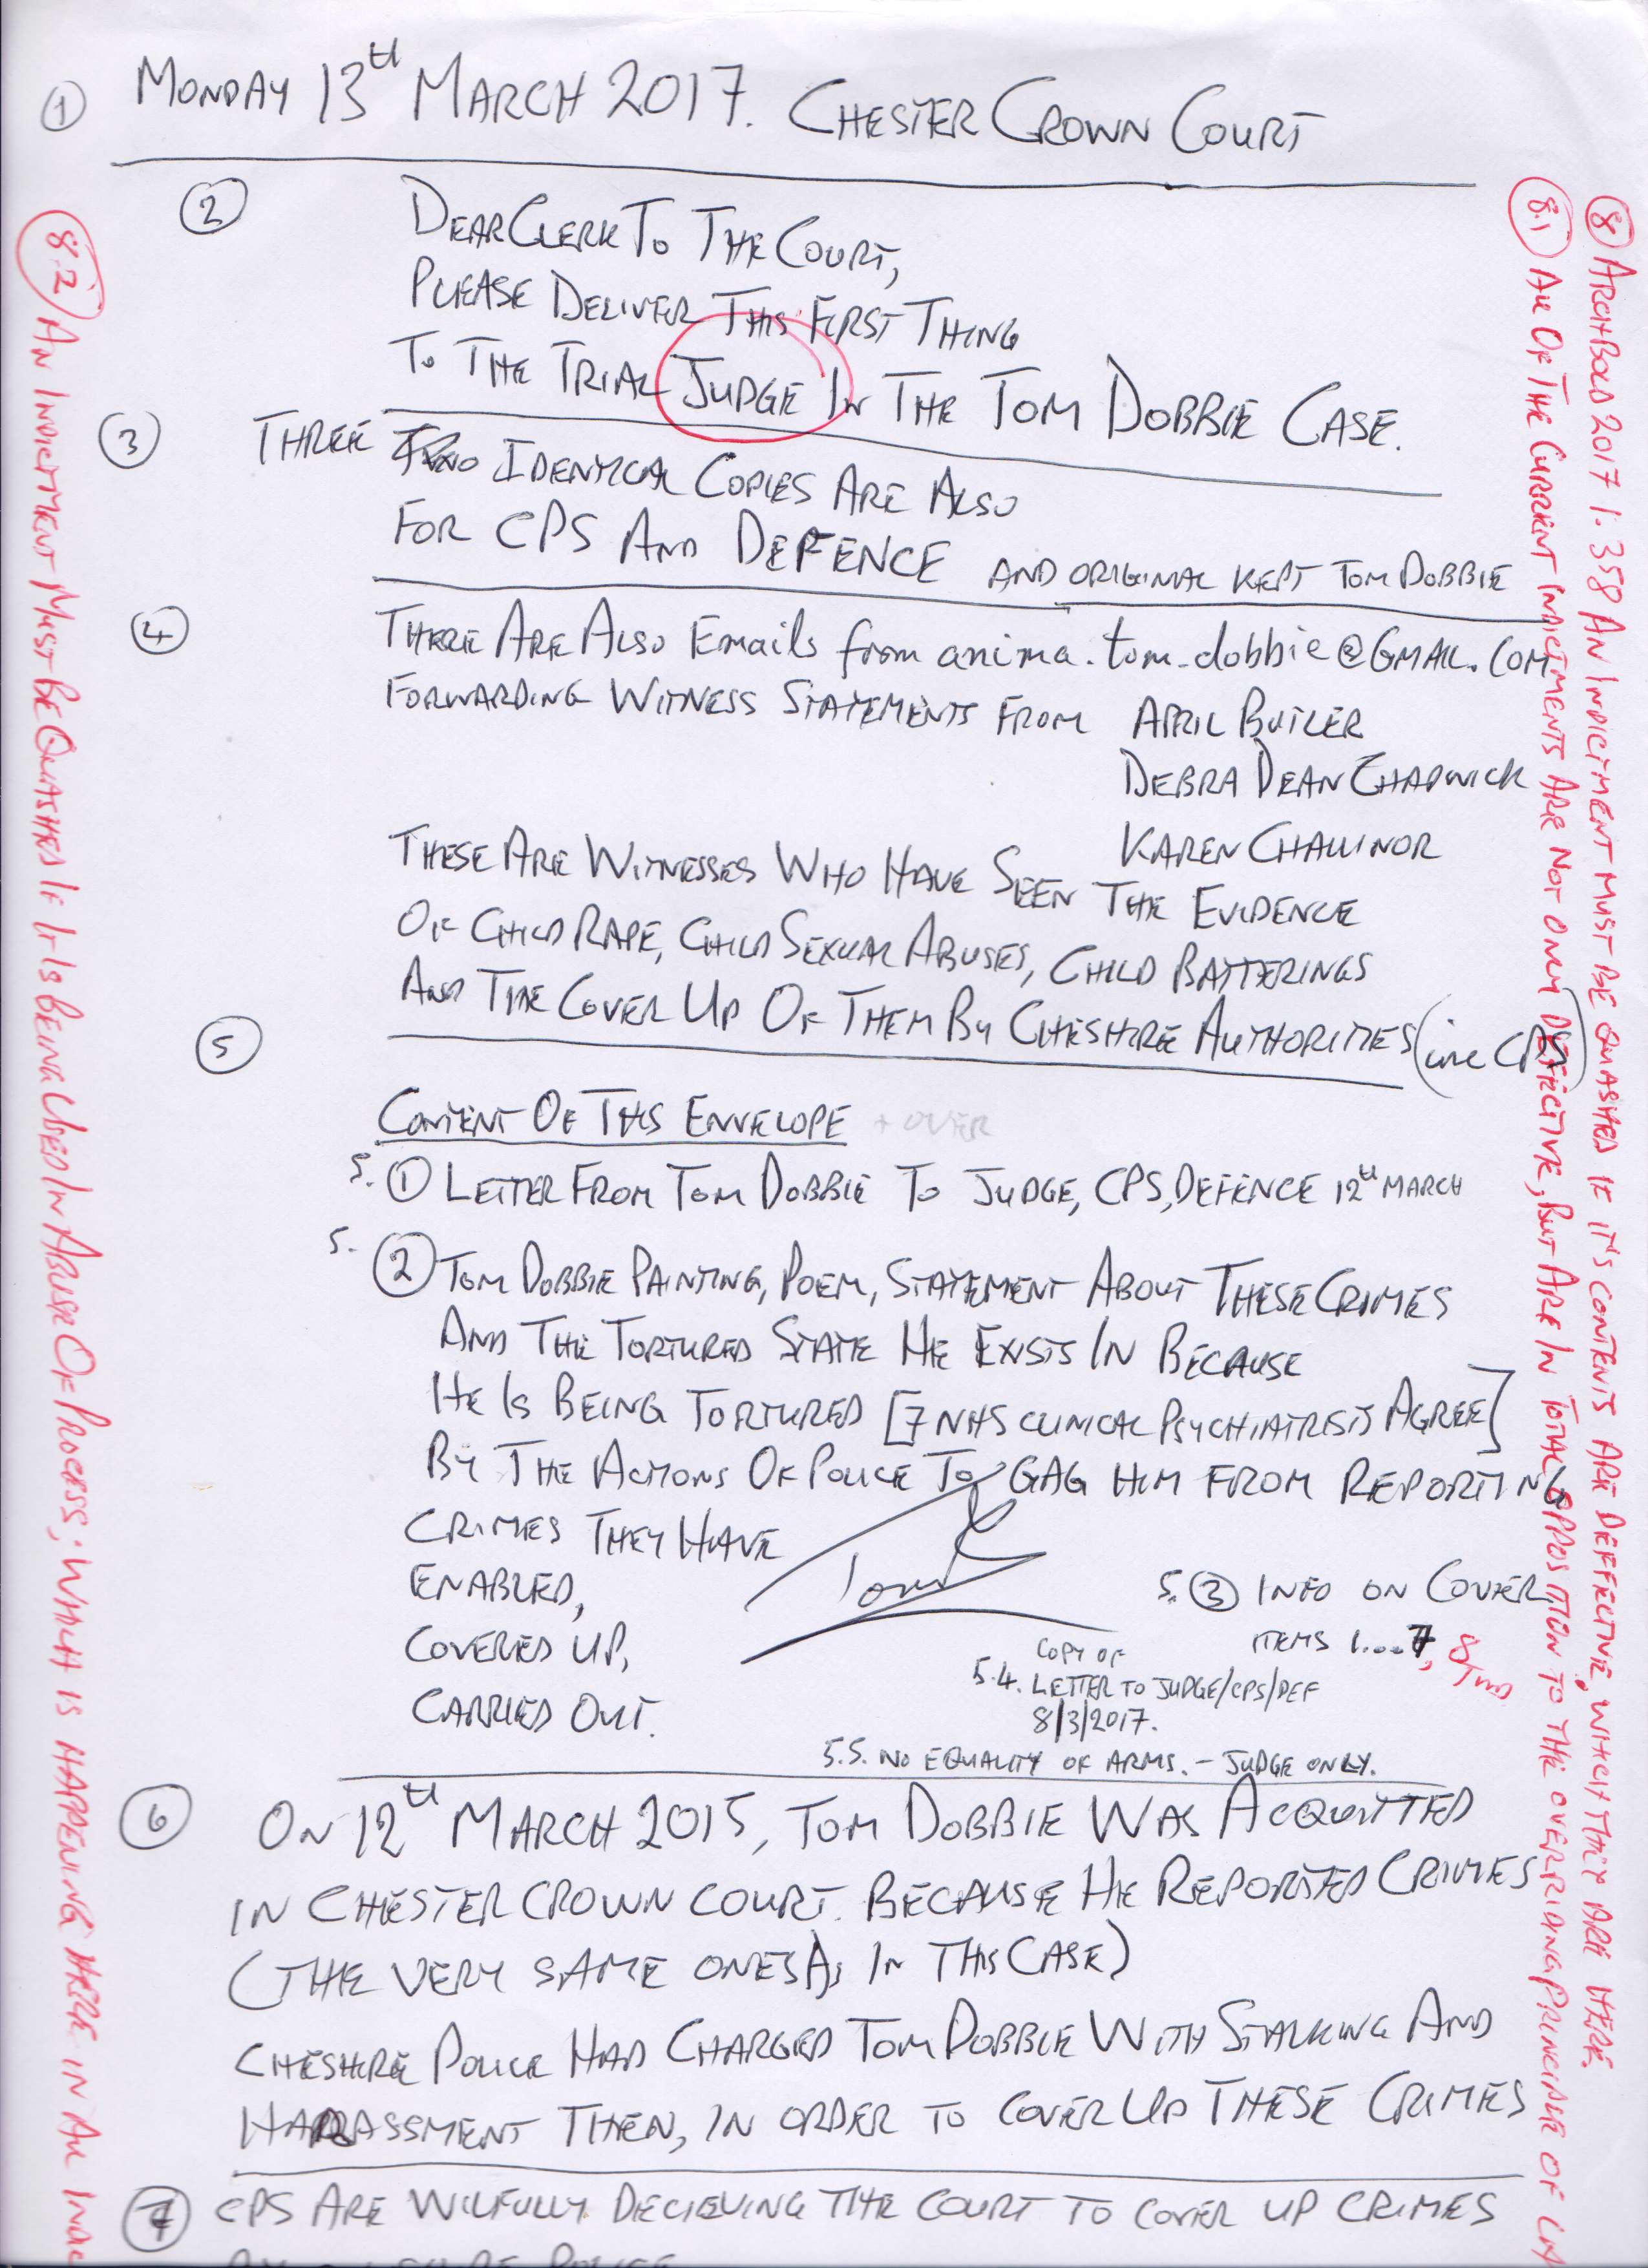 ① MONDAY 13th MARCH 2017. CHESTER CROWN COURT
② DEAR CLERK TO THE COURT,
PLEASE DELIVER THIS FIRST THING
TO THE TRIAL JUDGE IN THE TOM DOBBIE CASE.
③ THREE IDENTICAL COPIES ARE ALSO
FOR CPS AND DEFENCE AND ORIGINAL KEPT TOM DOBBIE
④ THERE ARE ALSO Emails from anima.tom.dobbie@GMAIL.COM
FORWARDING WITNESS STATEMENTS FROM APRIL BUTLER
DEBRA DEAN CHADWICK
KAREN CHALLINOR
THESE ARE WITNESSES WHO HAVE SEEN THE EVIDENCE
OF CHILD RAPE, CHILD SEXUAL ABUSES, CHILD BATTERINGS
AND THE COVER UP OF THEM BY CHESHIRE AUTHORITIES (inc CPS)
⑤
CONTENT OF THIS ENVELOPE + OVER
5. ① LETTER FROM TOM DOBBIE TO JUDGE, CPS, DEFENCE 12th MARCH
5. ② TOM DOBBIE PAINTING, POEM, STATEMENT ABOUT THESE CRIMES
AND THE TORTURED STATE HE EXISTS IN BECAUSE
HE IS BEING TORTURED [7 NHS CLINICAL PSYCHIATRISTS AGREE]
BY THE ACTIONS OF POLICE TO GAG HIM FROM REPORTING
CRIMES THEY HAVE
ENABLED,
COVERED UP,
CARRIED OUT.
Tom
5. ③ INFO ON COVER
ITEMS 1....7, 8
COPY OF
5.4. LETTER TO JUDGE/CPS/DEF
8/3/2017.
5.5. NO EQUALITY OF ARMS. - JUDGE ONLY.
⑥ ON 12th MARCH 2015, TOM DOBBIE WAS ACQUITTED
IN CHESTER CROWN COURT. BECAUSE HE REPORTED CRIMES
(THE VERY SAME ONES AS IN THIS CASE)
CHESHIRE POLICE HAD CHARGED TOM DOBBIE WITH STALKING AND
HARRASSMENT THEN, IN ORDER TO COVER UP THESE CRIMES
⑦ CPS ARE WILFULLY DECIEVING THE COURT TO COVER UP CRIMES
⑧ ARCHBOLD 2017 1.358 AN INDICTMENT MUST BE QUASHED IF IT'S CONTENTS ARE DEFFECTIVE, WHICH THEY ARE HERE.
8.1 ALL OF THE CURRENT INDICTMENTS ARE NOT ONLY DEFECTIVE, BUT ARE IN TOTAL OPPOSITION TO THE OVERRIDING PRINCIPLE OF
8.2 AN INDICTMENT MUST BE QUASHED IF IT IS BEING USED IN ABUSE OF PROCESS; WHICH IS HAPPENING HERE IN ALL